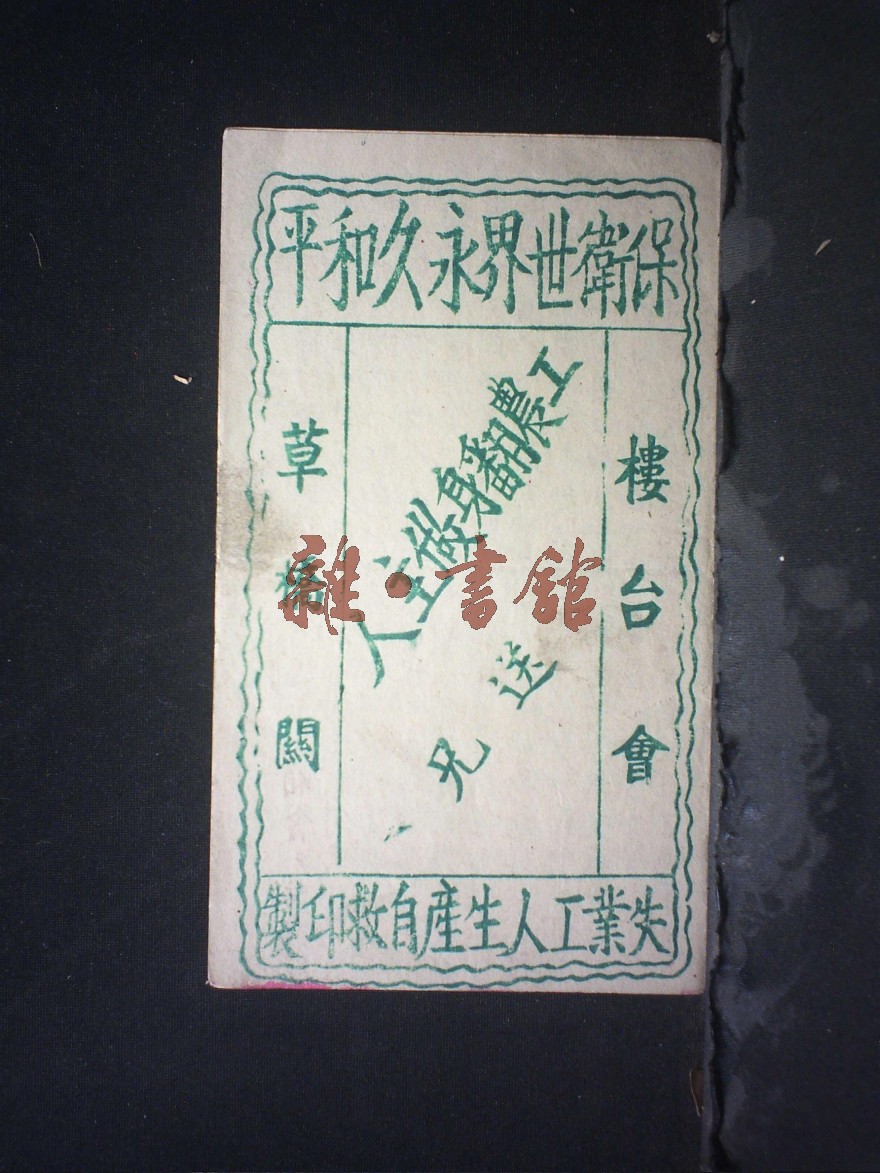 保衛世界永久和平
樓台會
工農翻身做主人
送兄
草橋關
失業工人生產自救印製
雜·書館